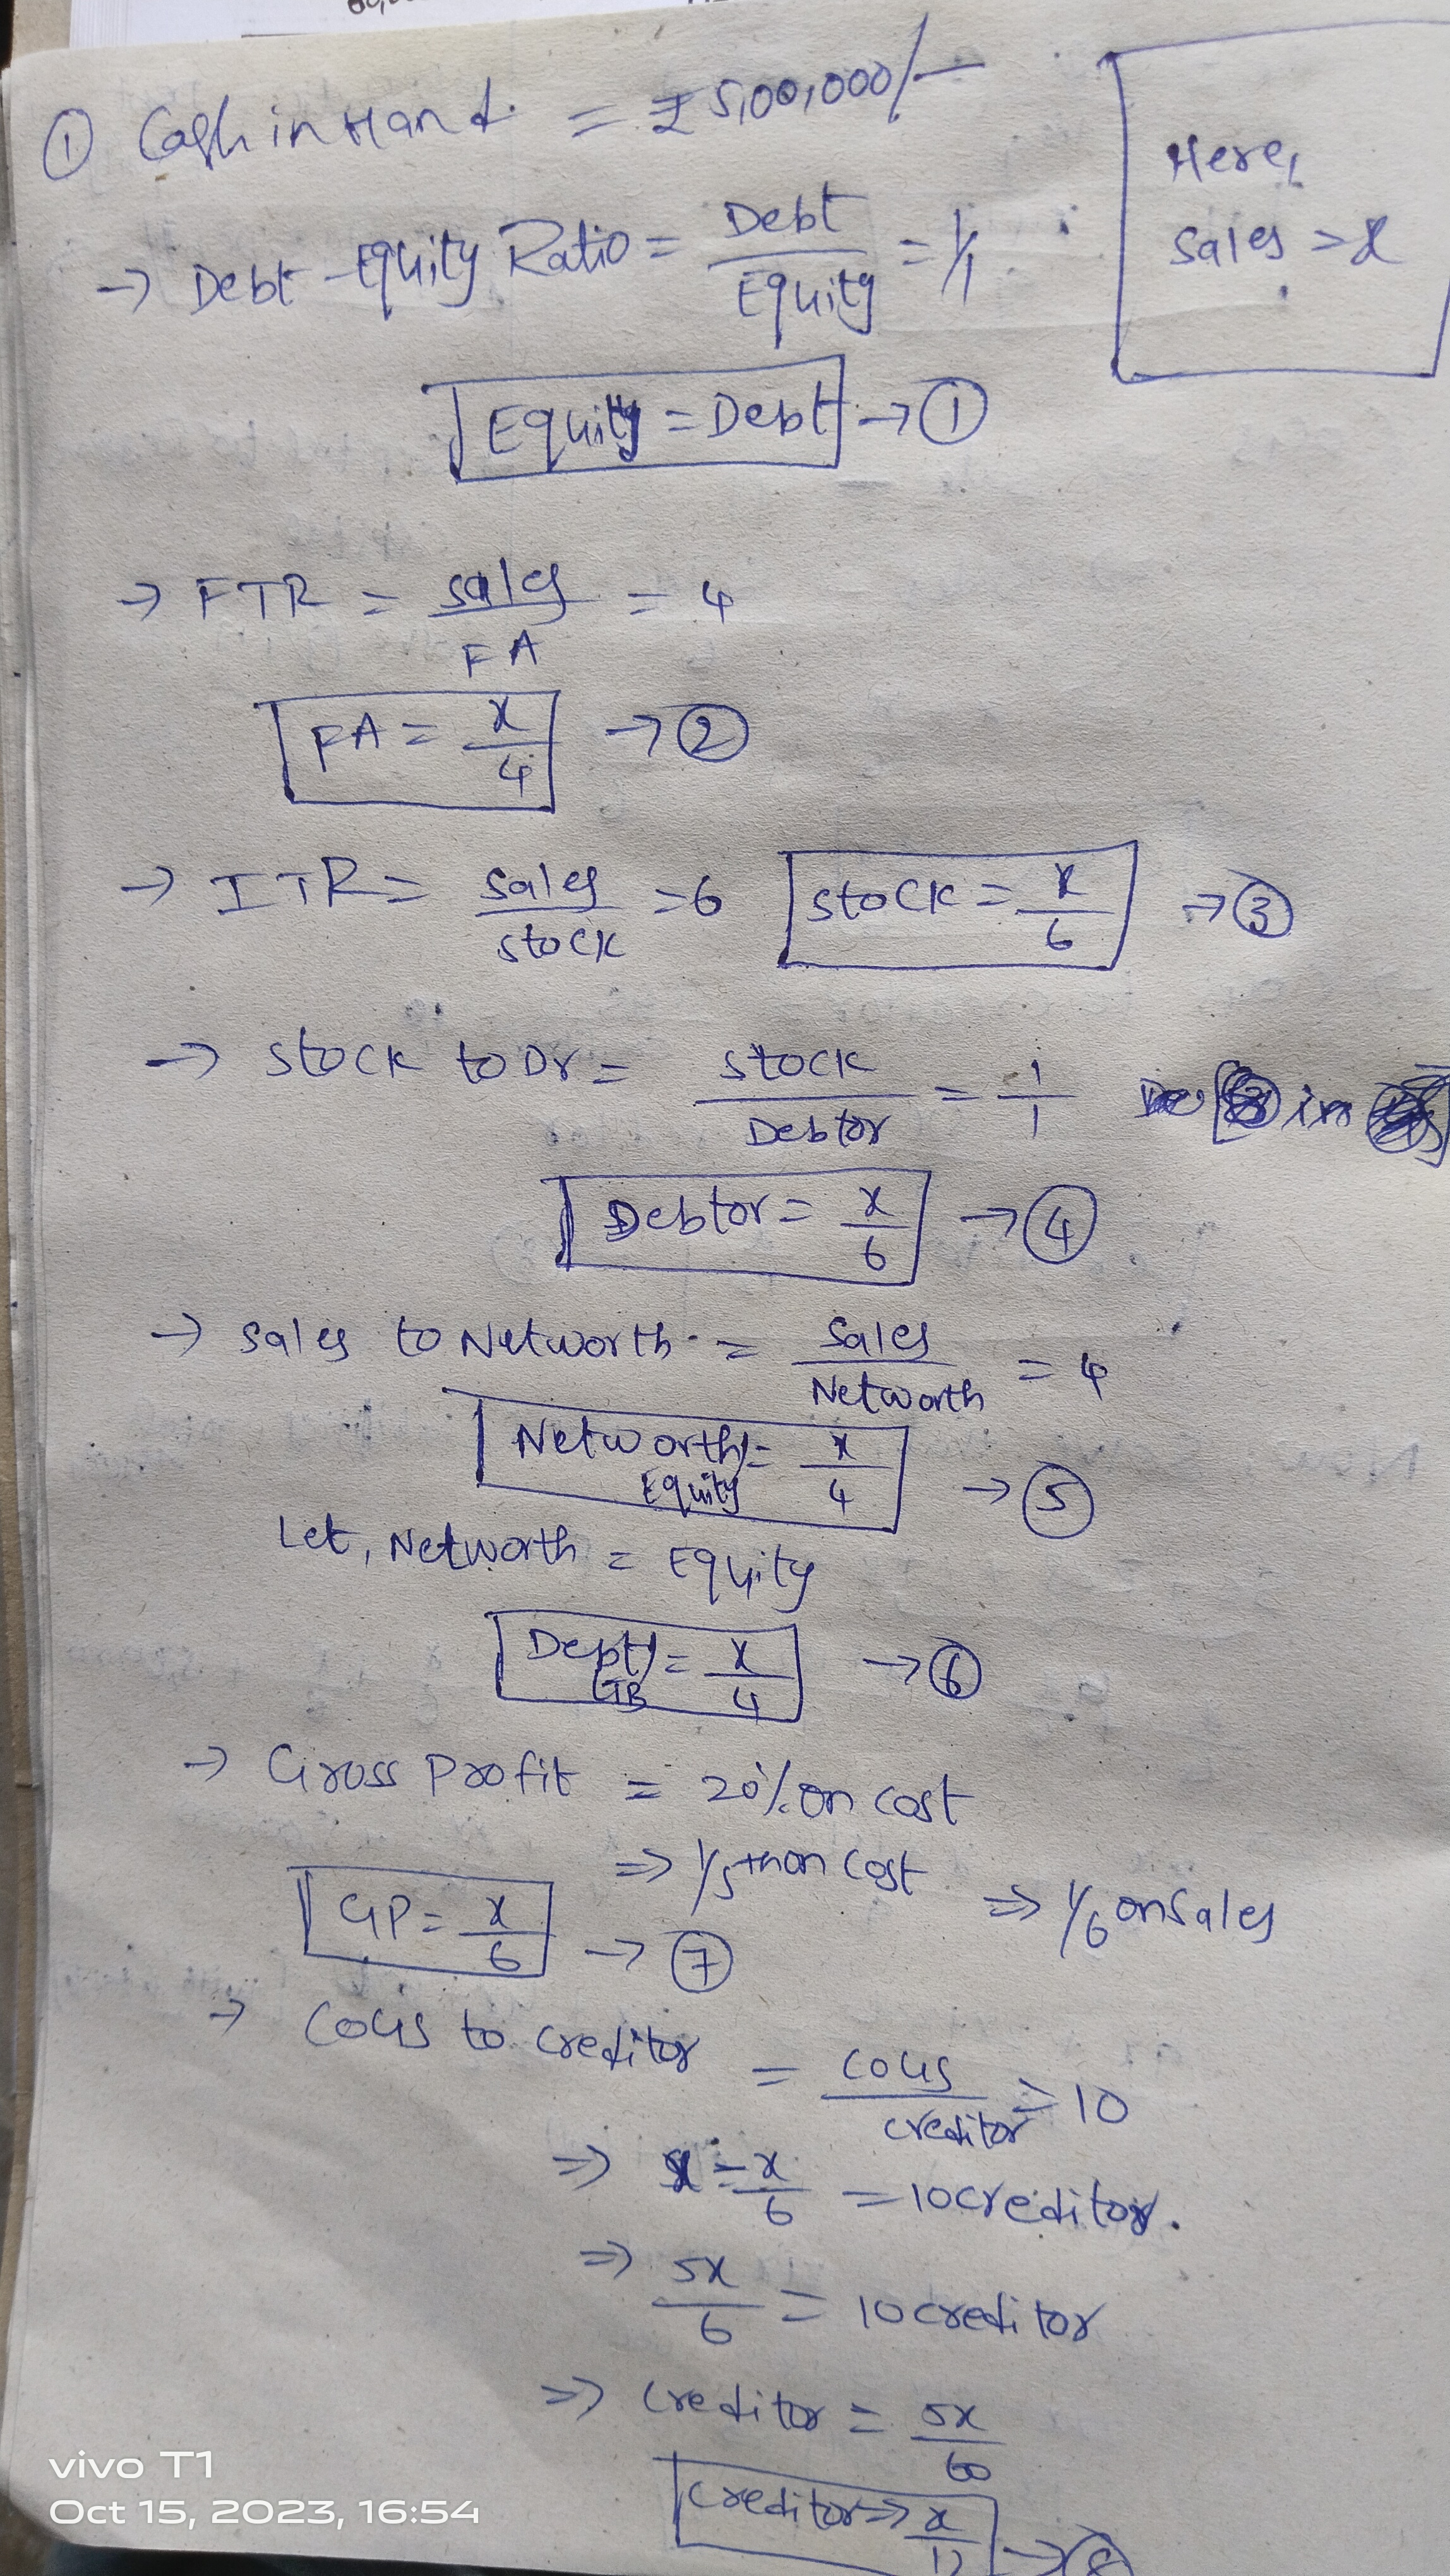 ① Cash in Hand = ₹5,00,000/-
Here,
Sales = x
→ Debt-Equity Ratio = Debt/Equity = 1/1
Equity = Debt → ①
→ FTR = Sales/FA = 4
FA = x/4 → ②
→ ITR = Sales/Stock = 6 Stock = x/6 → ③
→ Stock to Dr = Stock/Debtor = 1/1
Debtor = x/6 → ④
→ Sales to Networth = Sales/Networth = 4
Networth/Equity = x/4 → ⑤
Let, Networth = Equity
= x/4 → ⑥
→ Gross Profit = 20% on cost
⇒ 1/5th on cost ⇒ 1/6 on Sales
GP = x/6 → ⑦
→ COGS to creditor = COGS/creditor = 10
⇒ x - x/6 = 10 creditor.
⇒ 5x/6 = 10 creditor
⇒ Creditor = 5x/60
Creditor ⇒ x/12 → ⑧
vivo T1
Oct 15, 2023, 16:54